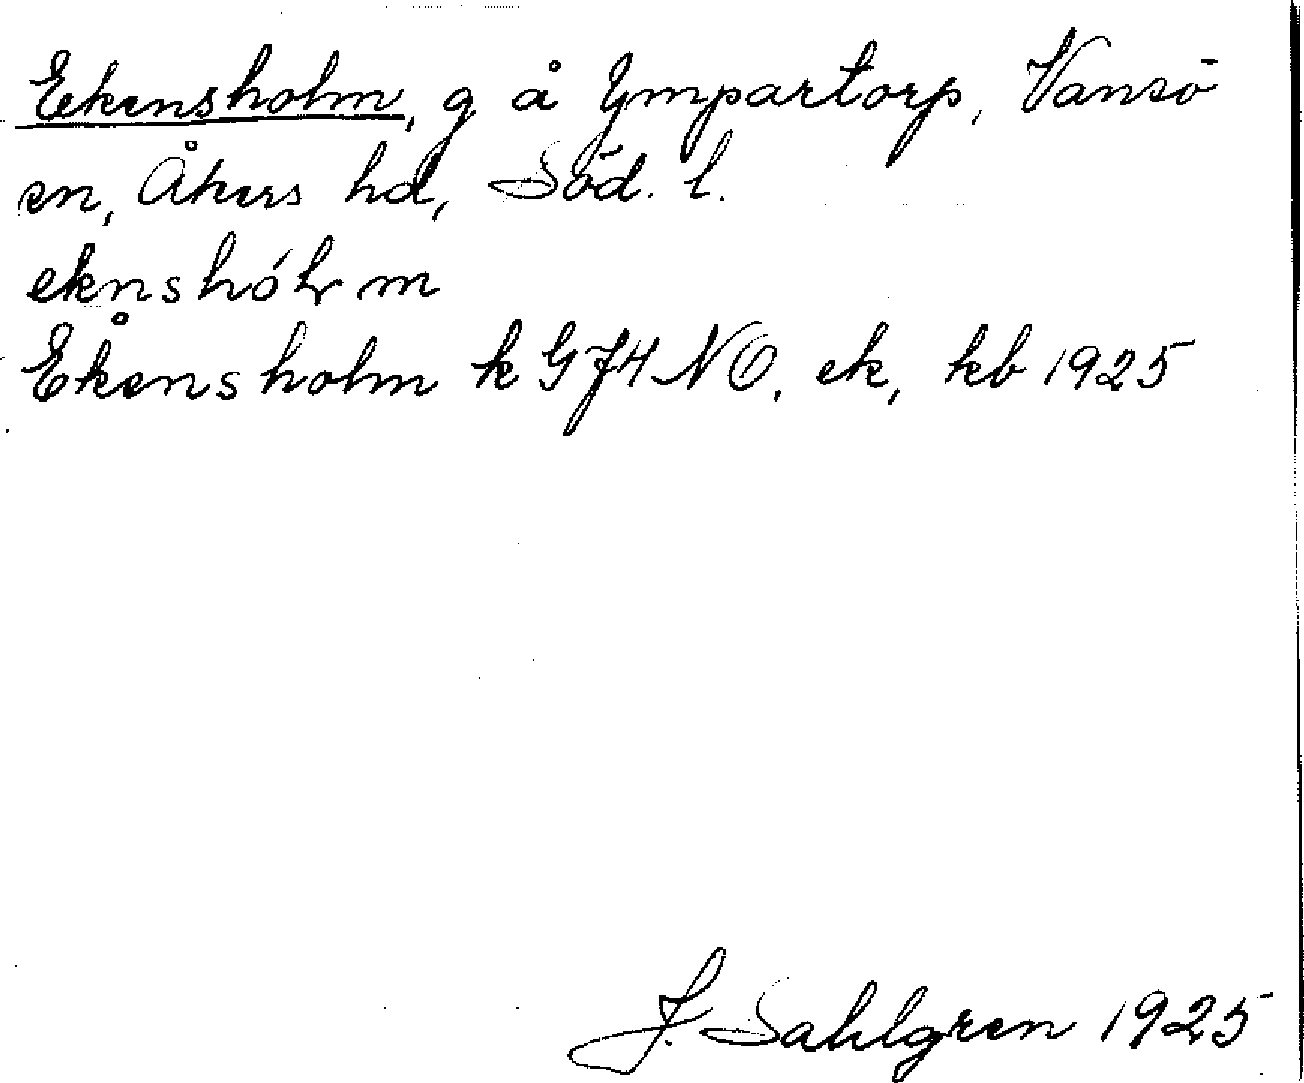 Ekensholm, g å Ympartorp, Vansö
sn, Åkers hd, Söd. l.
eknshóLm
Ekensholm k GJ4 NO, ek, kb 1925
J. Sahlgren 1925